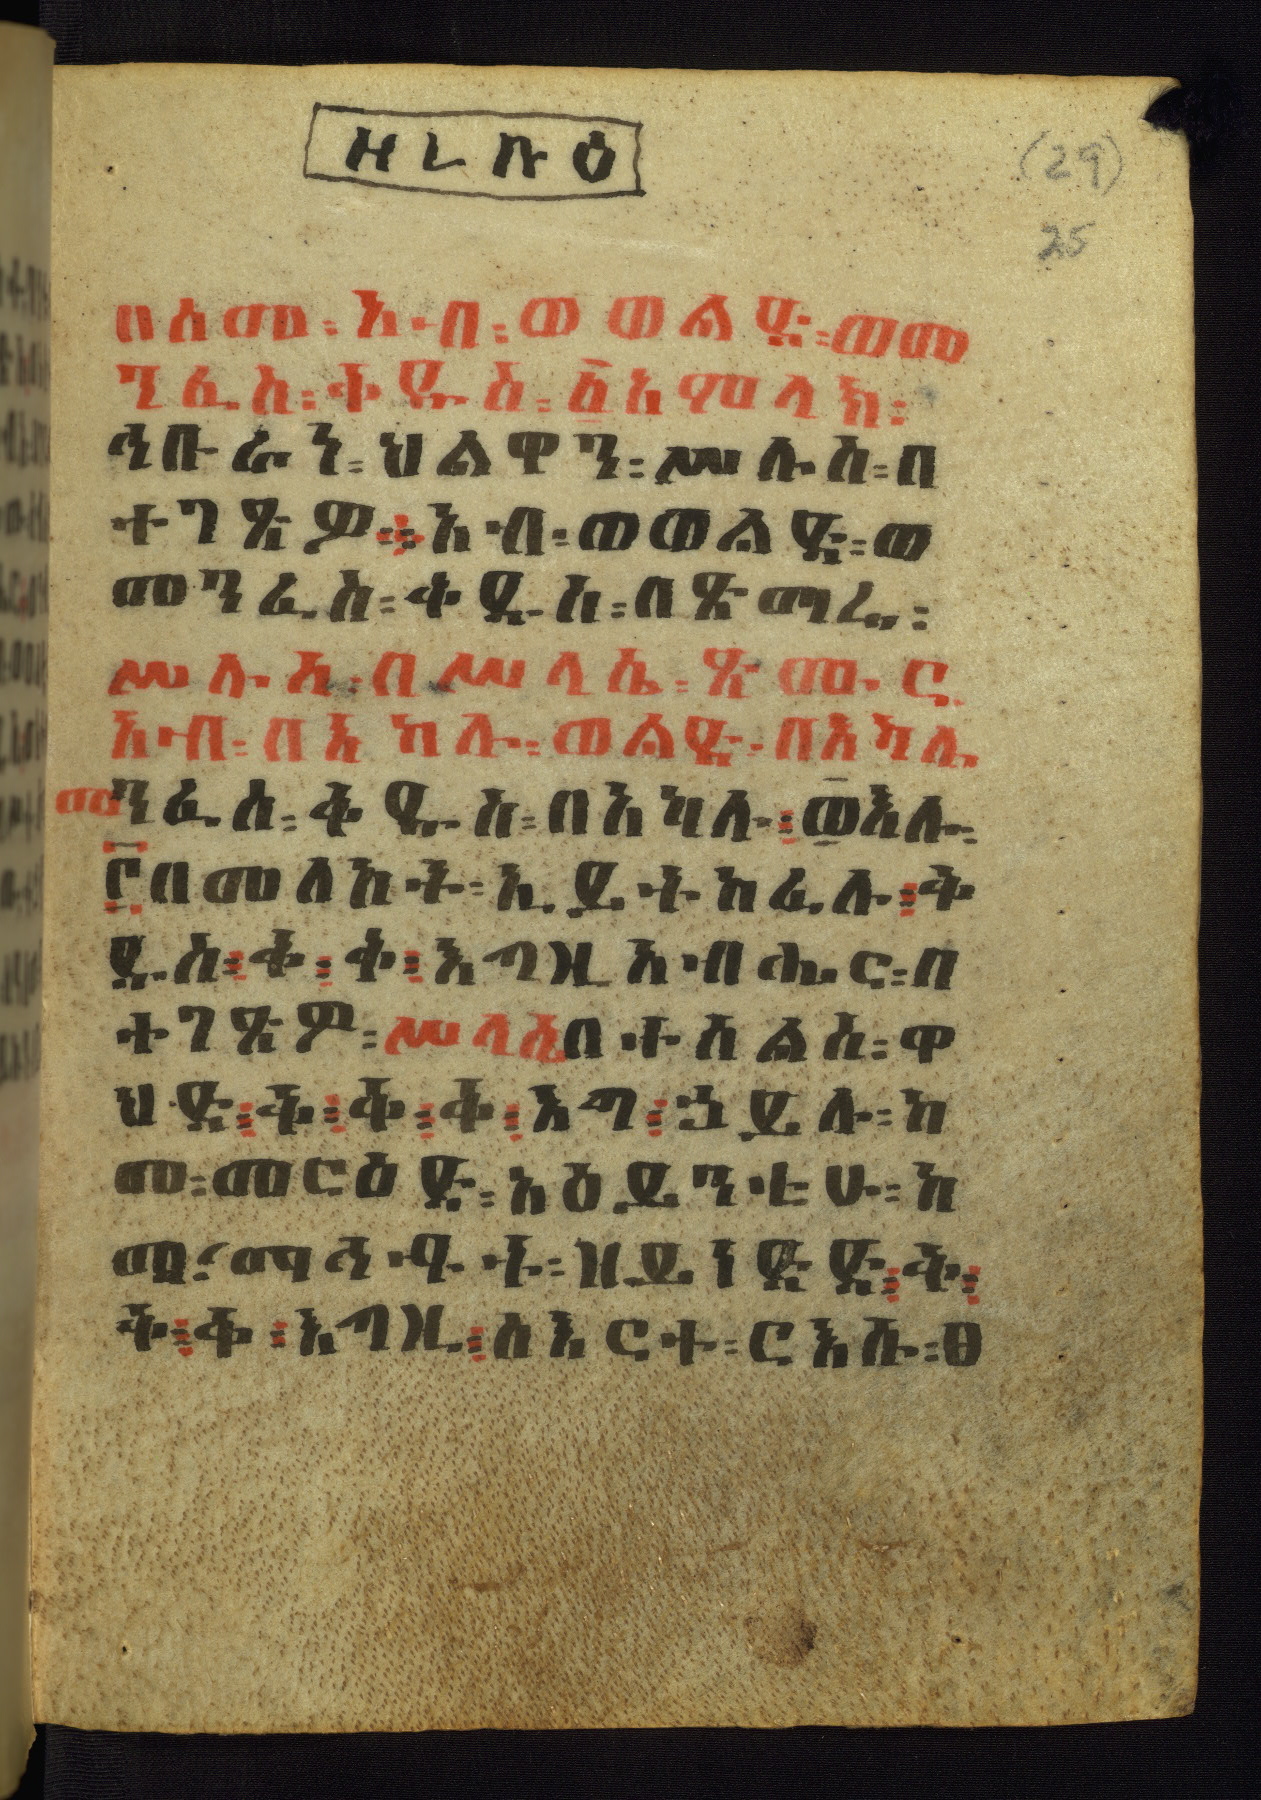 ዘረቡዕ
(29)
25
በስመ፡አብ፡ወወልድ፡ወመ
ንፈስ፡ቅዱስ፡፩አምላክ፡
ኅቡረነ፡ህልዋን፡ሥሉስ፡በ
ተገጽዎ፡አብ፡ወወልድ፡ወ
መንፈስ፡ቅዱስ፡በጽማሬ፡
ሥሉስ፡በሥላሴ፡ጽሙር
አብ፡በአካሉ፡ወልድ፡በአካሉ
መንፈስ፡ቅዱስ፡በአካሉ፡ወእሉ፡
፫በመለኮት፡ኢይትከፈሉ፡ቅ
ዱስ፡ቅ፡ቅ፡እግዚአብሔር፡በ
ተገጽዎ፡ሥላሴበተስልስ፡ዋ
ህድ፡ቅ፡ቅ፡ቅ፡እግ፡ኃይሉ፡ከ
መ፡መርዕድ፡አዕይንቲሁ፡ከ
መ፡ማኅቶት፡ዘይነድድ፡ቅ፡
ቅ፡ቅ፡እግዚ፡ስእርተ፡ርእሱ፡ፀ